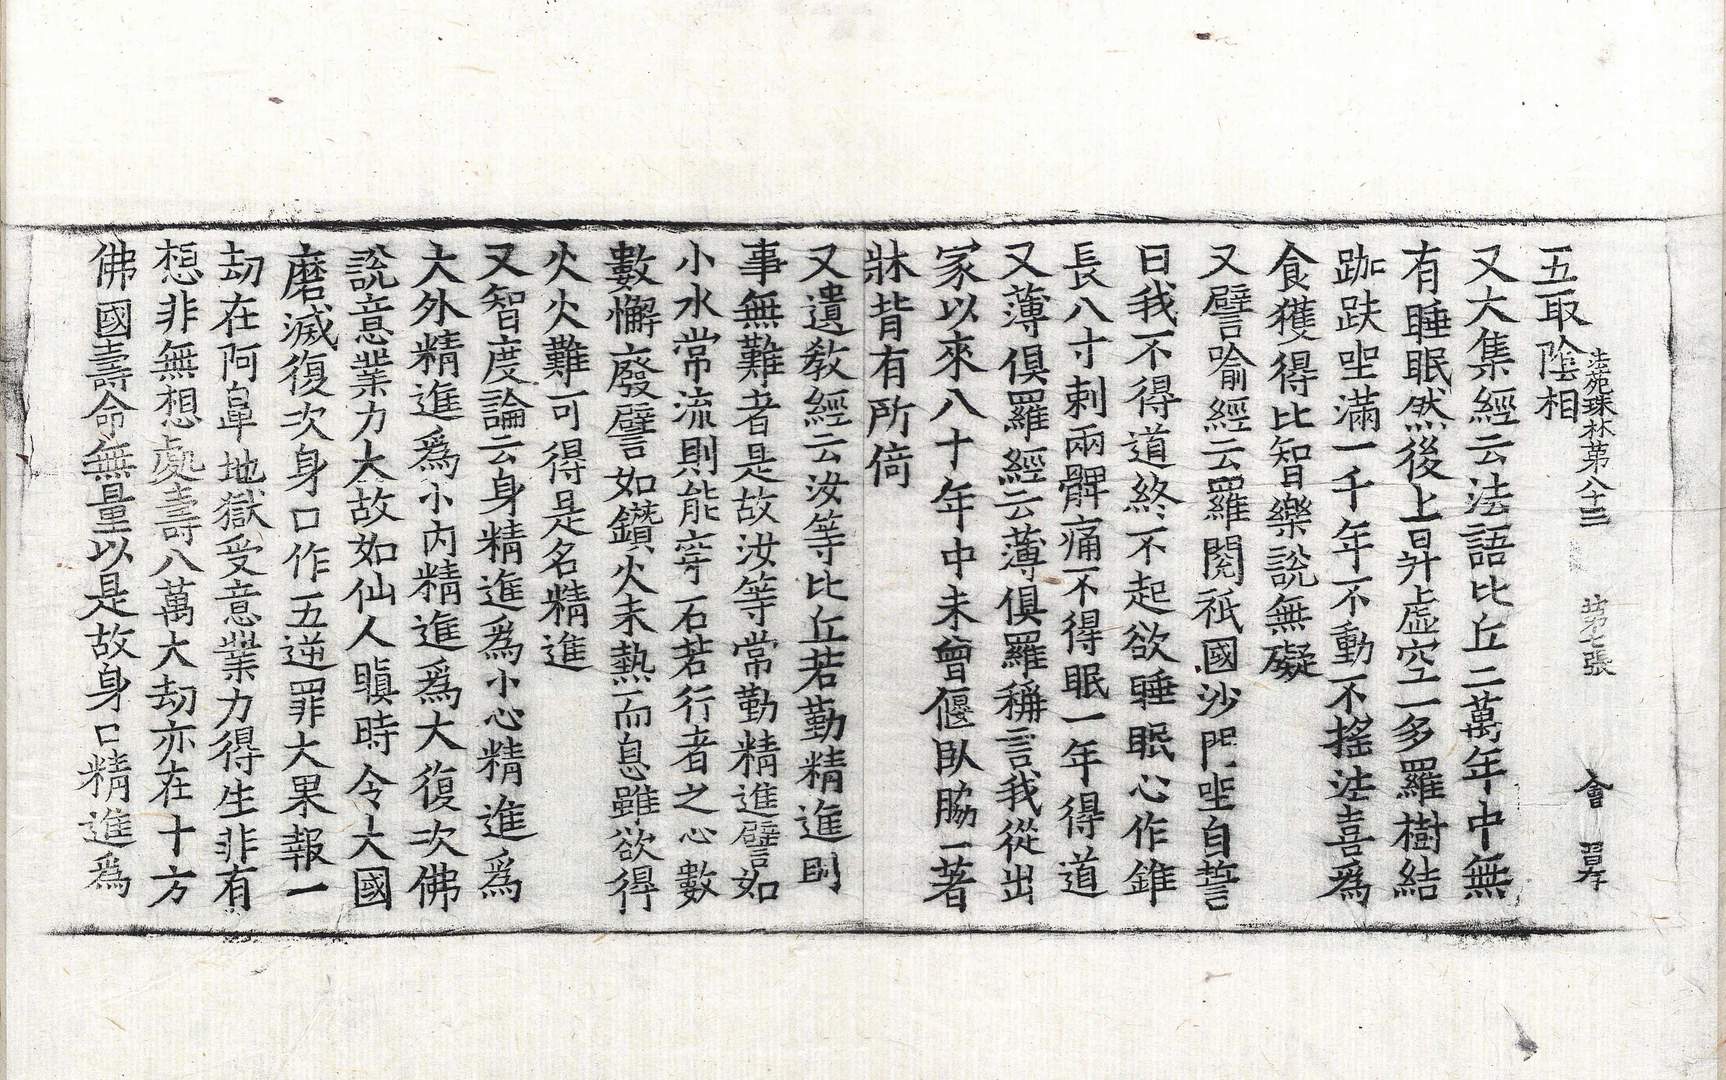 法苑珠林第八十三 第七張 會
五取陰相
又大集經云法語比丘二萬年中無
有睡眠然後上昇虛空一多羅樹結
跏趺坐滿一千年不動不搖法喜爲
食獲得比智樂說無礙
又譬喻經云羅閱祇國沙門坐自誓
曰我不得道終不起欲睡眠心作錐
長八寸刺兩髀痛不得眠一年得道
又薄俱羅經云薄俱羅稱言我從出
家以來八十年中未曾偃臥脇一著
牀背有所倚
又遺教經云汝等比丘若勤精進則
事無難者是故汝等常勤精進譬如
小水常流則能穿石若行者之心數
數懈廢譬如鑽火未熱而息雖欲得
火火難可得是名精進
又智度論云身精進爲小心精進爲
大外精進爲小內精進爲大復次佛
說意業力大故如仙人瞋時令大國
磨滅復次身口作五逆罪大果報一
劫在阿鼻地獄受意業力得生非有
想非無想處壽八萬大劫亦在十方
佛國壽命無量以是故身口精進爲